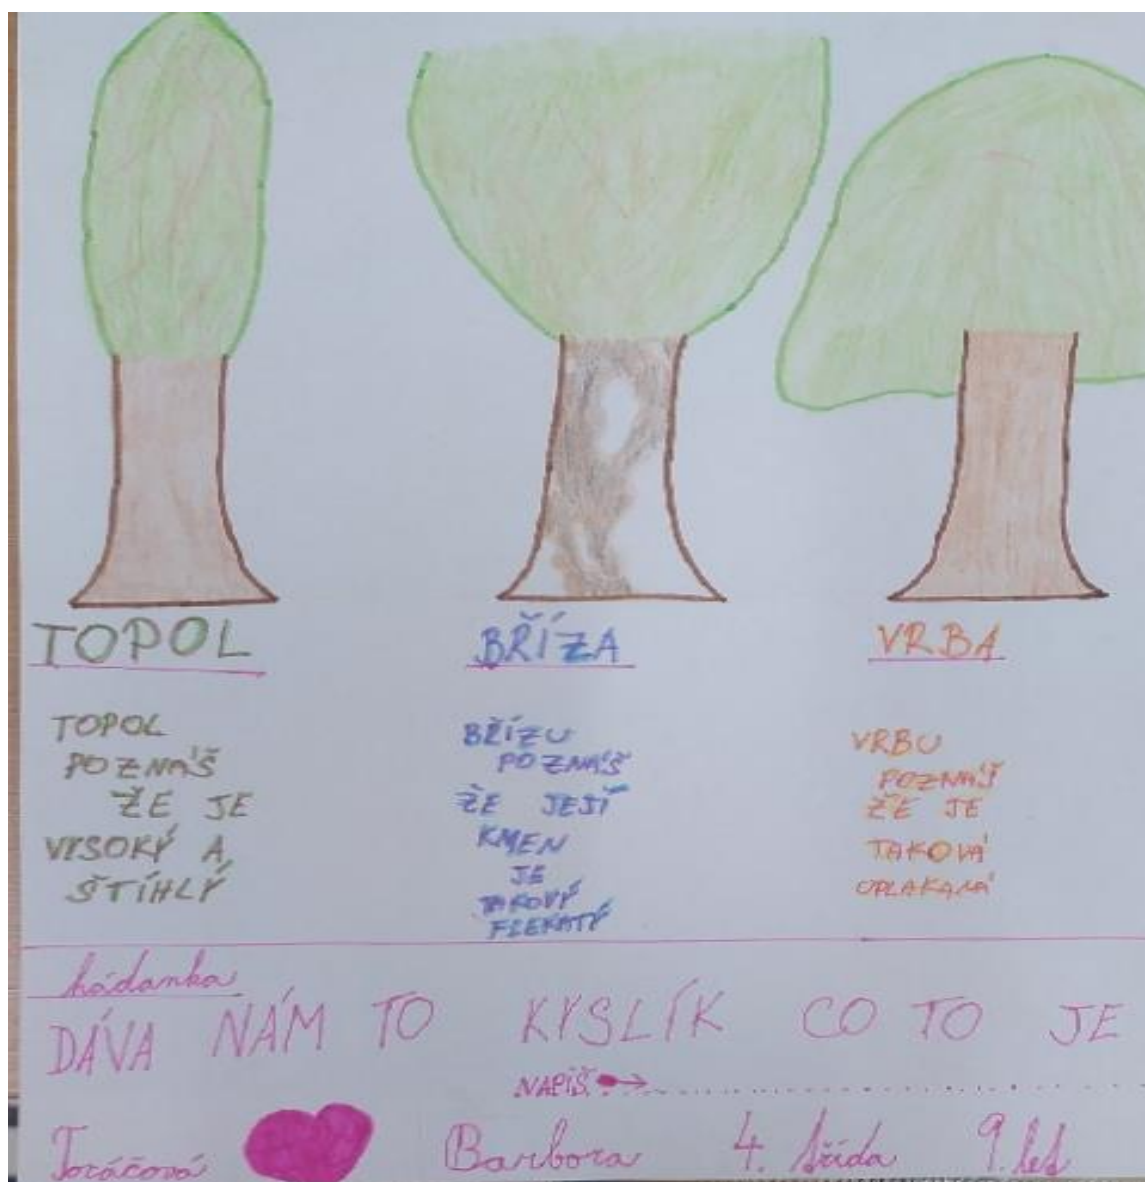 TOPOL
BŘÍZA
VRBA
TOPOL
POZNÁŠ
ŽE JE
VYSOKÝ A
ŠTÍHLÝ
BŘÍZU
POZNÁŠ
ŽE JEJÍ
KMEN
JE
TAKOVÝ
FLEKATÝ
VRBU
POZNÁŠ
ŽE JE
TAKOVÁ
UPLAKANÁ
hádanka
DÁVA NÁM TO KYSLÍK CO TO JE
NAPIŠ
Barbora 4. třída 9. let